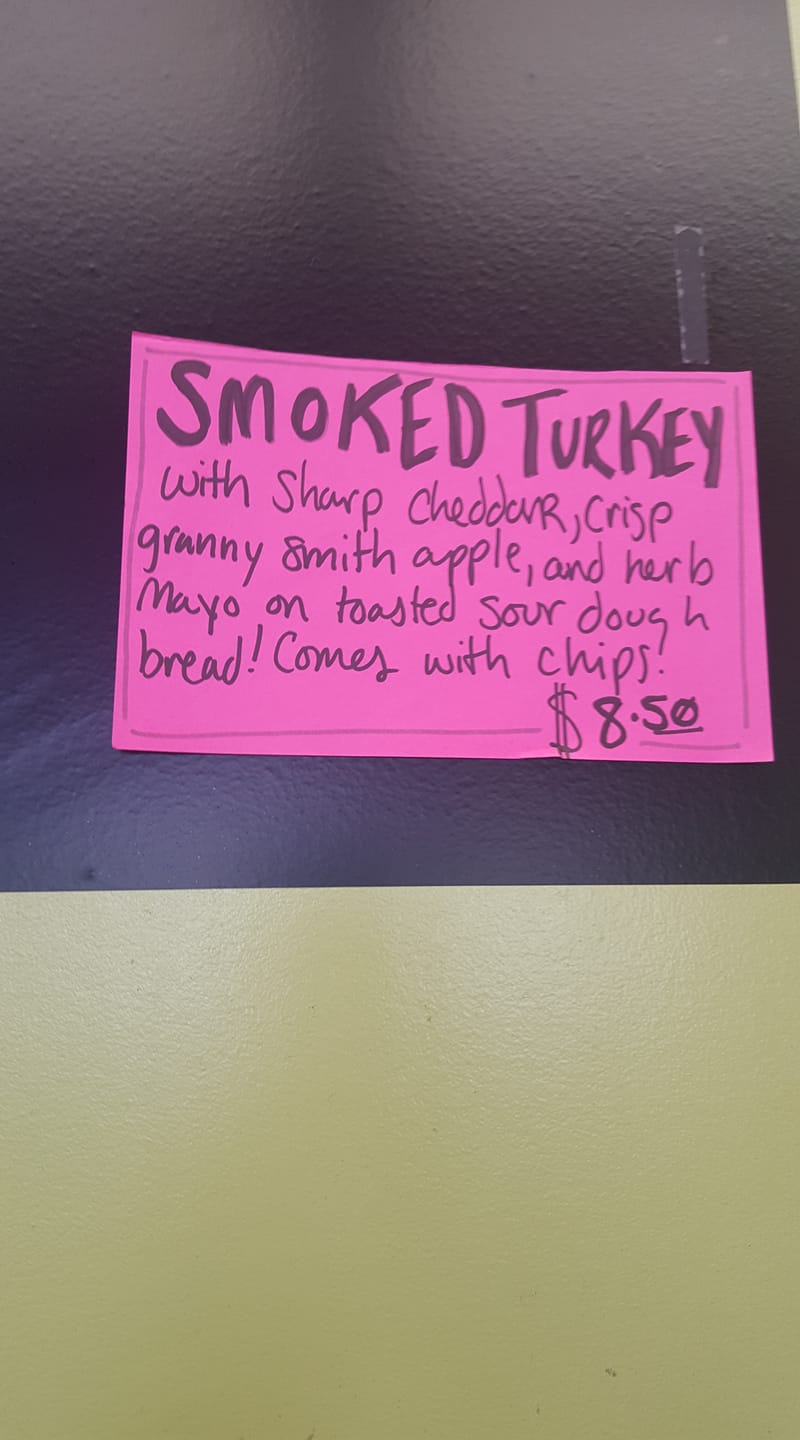 SMOKED TURKEY
with Sharp Cheddar, Crisp
granny smith apple, and herb
Mayo on toasted sour dough
bread! Comes with chips!
$8.50